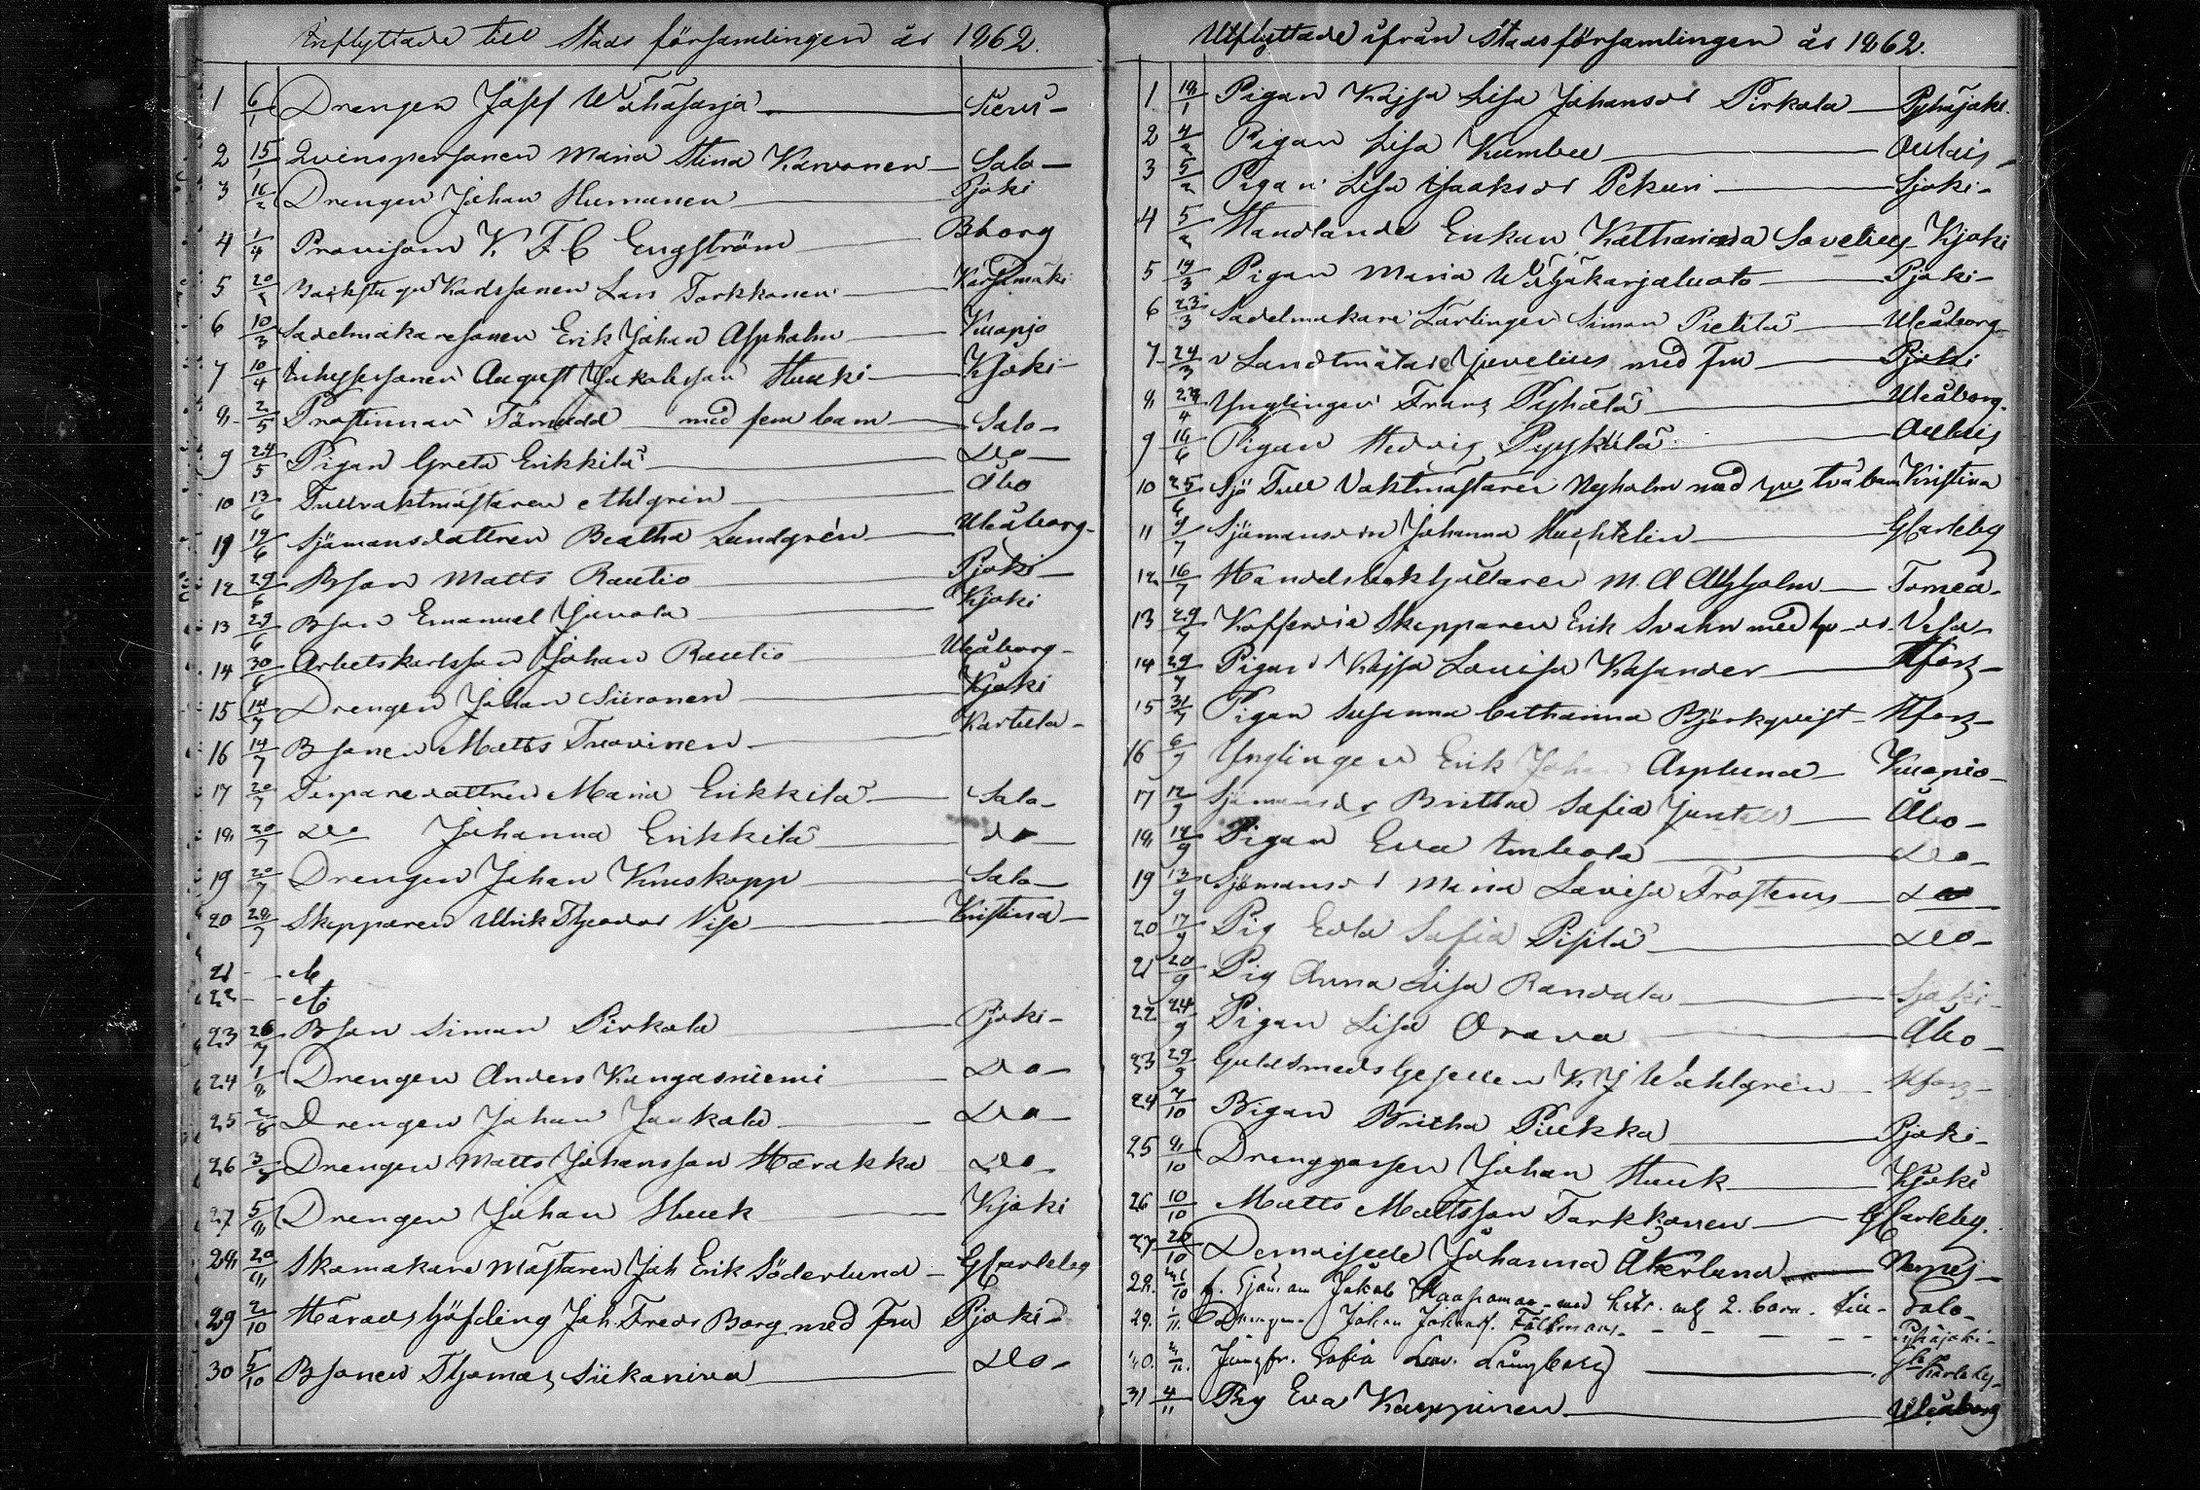 Inflyttade till Stads församlingen år 1862.
1 6/1 Drengen Josef Wähäsarja Sievi
2 15/1 Qvinspersonen Maria Stina Karvonen Salo
3 16/2 Drengen Johan Humanen Pjoki
4 1/4 Provisorn K. F. C Engström Bborg
5 20/ Lars Torkkonen Kärsämäki
6 10/3 Sadelmakaresonen Erik Johan Aspholm Kuopio
7 10/4 Inhysessonen August Jakobsson Huuki Kjoki
8 2/5 Prostinnan Törnudd med fem barn Salo
9 24/5 Pigan Greta Erikkilä do
10 13/6 Tullvaktmästaren Ahlgrén Åbo
19 19/6 Sjömansdottren Beatha Lundgrén Uleåborg
12 29/6 Bson Matts Rautio Pjoki
13 29/6 Bson Emanuel Junola Kjoki
14 30/6 Arbetskarlsson Johan Rautio Uleåborg
15 14/7 Drengen Johan Siironen Kjoki
16 14/7 Bsonen Matts Tuovinen Karttula
17 20/7 Torparedottren Maria Erikkilä Salo
18 20/7 do Johanna Erikkilä do
19 20/7 Drengen Johan Kuuskopp Salo
20 28/7 Skepparen Ulrik Theodor Vise Kristina
21
22
23 26/7 Bson Simon Pirkola Pjoki
24 1/8 Drengen Anders Kangasniemi do
25 2/8 Drengen Johan Junkola do
26 3/8 Drengen Matts Johansson Harakka do
27 5/8 Drengen Johan Huuk Kjoki
28 20/8 Skomakare Mästaren Joh Erik Söderlund Gkarleby
29 2/10 Häradshöfding Joh. Fredr Borg med Fru Pjoki
30 5/10 Bsonen Thomas Siikaniva do
Utflyttade ifrån Stadsförsamlingen år 1862.
1 18/1 Pigan Kajsa Lisa Johansdr Pirkola Pyhäjoki
2 4/2 Pigan Lisa Kumbu Oulais
3 5/2 Pigan Lisa Isaksdr Pekuri Sjoki
4 5/2 Handlande Enkan Katharina Sovelius Kjoki
5 14/3 Pigan Maria Wähäkarjaluoto Pjoki
6 23/3 Sadelmakare Lärlingen Simon Pietilä Uleåborg
7 24/3 v Landtmätar Juvelius med fru Pjoki
8 28/4 Ynglingen Franz Pyhälä Uleåborg
9 16/6 Pigan Hedvig Pyykilä Oulais
10 25/6 Sjö Tull Vaktmästaren Nyholm med hu två barn Kristina
11 9/7 Sjömansdrn Johanna Huchtelin Gkarleby
12 16/7 Handelsbokhållaren M. A Ahlholm Torneå
13 29/7 Kofferdie Skepparen Erik Svahn med Vasa
14 29/7 Pigan Kajsa Lovisa Kasander Hfors
15 31/7 Pigan Susanna Catharina Björkqvist Hfors
16 6/9 Ynglingen Erik Johan Asplund Kuopio
17 12/9 Sjömansdr Brittha Sofia Juntell Åbo
18 12/9 Pigan Eva Imbola do
19 13/9 Sjömansdr Maria Lovisa Frosterus do
20 17/9 Pig Edla Sofia Pispla do
21 20/9 Pig Anna Lisa Randala Sjoki
22 24/9 Pigan Lisa Orava Åbo
23 29/9 Guldsmeds Gesellen K J Wahlgrén Hfors
24 7/10 Pigan Britha Piukka Pjoki
25 8/10 Drenggossen Johan Huuk Kjoki
26 10/10 Matts Mattsson Torkkonen Gkarleby
27 26/10 Demoiselle Johanna Åkerlund Nerpes
28. /10 f. Sjöm an Jakob Haapamaa med hstr. och 2. barn. till Salo
29. 1/11. Drengen Johan Johans. Fältmars Pyhäjoki
30. /11. Jungfr. Sofia Lov. Ljungberg Gla Karleby
31 4/11 Pig Eva Kauppinen Uleåborg